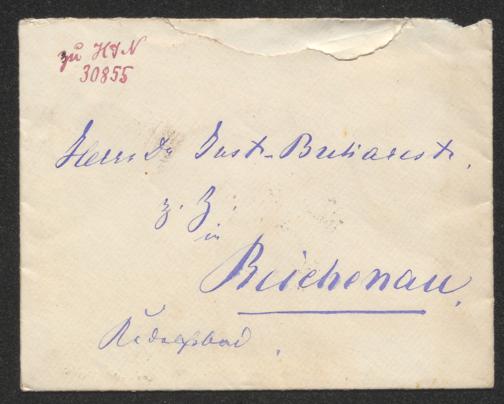 zu H I N
30855
Herrn Dr Gust. Bucharest.
z. Z.
in
Reichenau.
Rudolfsbad.